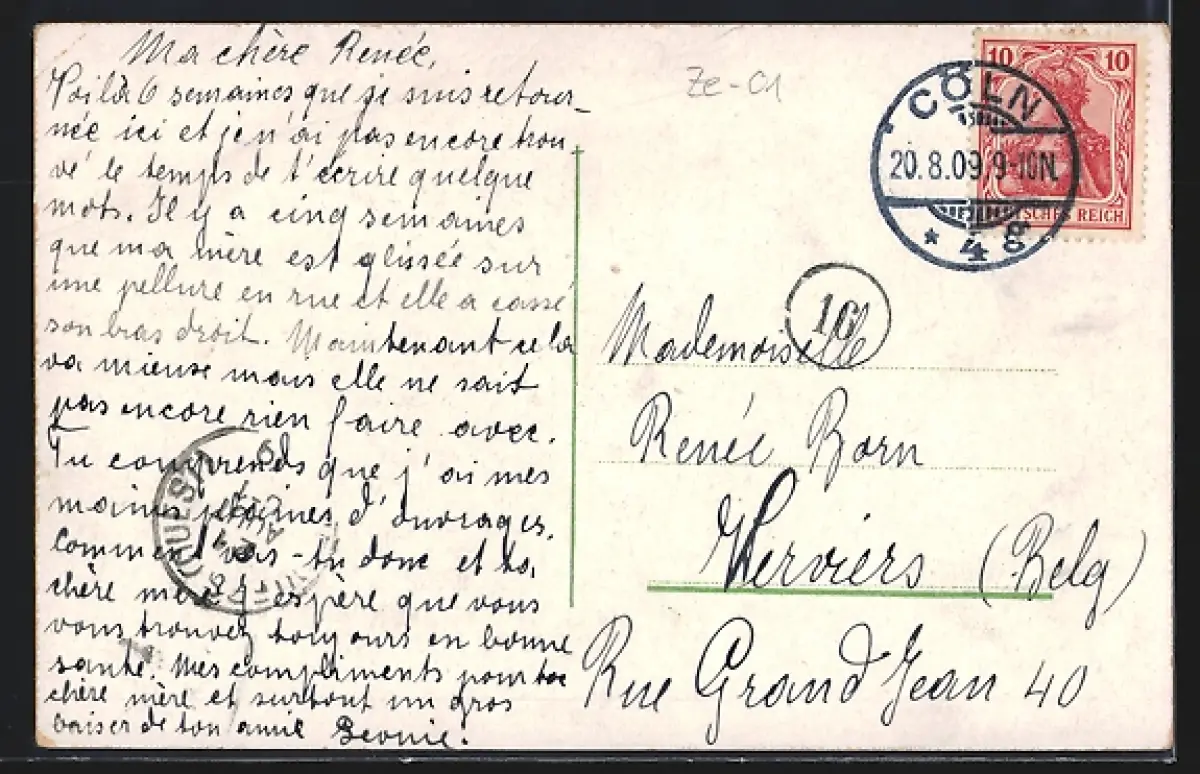 Ma chère Renée,
Voilà 6 semaines que je suis retour-
née ici et je n'ai pas encore trou-
vé le temps de t'écrire quelque
mots. Il y a cinq semaines
que ma mère est glissée sur
une pellure en rue et elle a cassé
son bras droit. Maintenant cela
va mieuse mais elle ne sait
pas encore rien faire avec.
Tu comprends que j'ai mes
mains pleines d'ouvrages.
Comment vas-tu donc et ta
chère mère j'espère que vous
vous trouvez toujours en bonne
santé. Mes compliments pour ta
chère mère et surtout un gros
baiser de ton amie Leonie.
Ze-01
10 10
DEUTSCHES REICH
CÖLN
20.8.09. 9-10N.
* 4 g
16
Mademoiselle
Renée Born
Verviers (Belg)
Rue Grand Jean 40